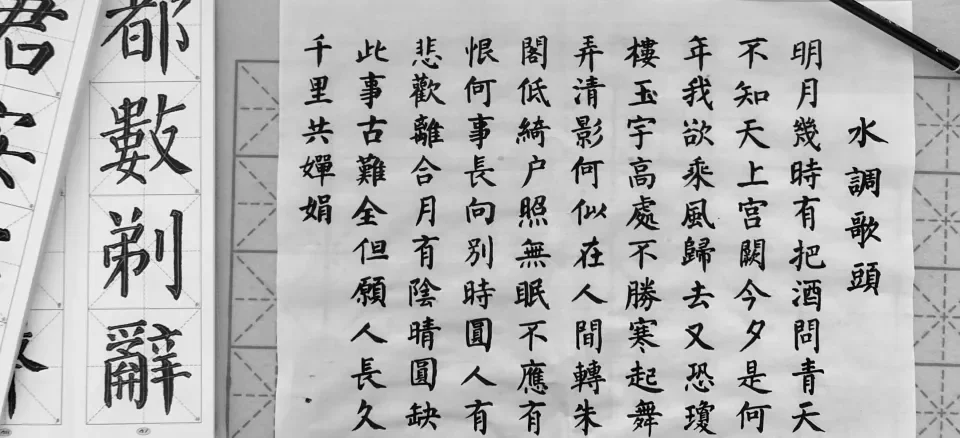 水調歌頭
明月幾時有把酒問青天
不知天上宫闕今夕是何
年我欲乘風歸去又恐瓊
樓玉宇高處不勝寒起舞
弄清影何似在人間轉朱
閣低綺户照無眠不應有
恨何事長向别時圓人有
悲歡離合月有陰晴圓缺
此事古難全但願人長久
千里共嬋娟
都
數
剃
辭
君